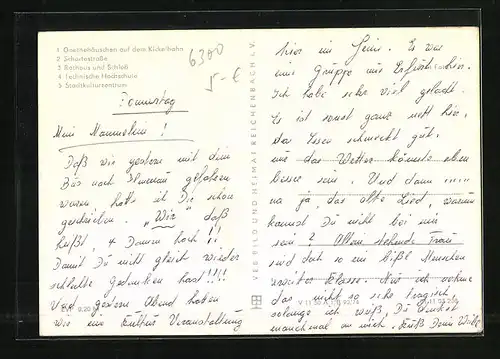 1 Goethehäuschen auf dem Kickelhahn
2 Schortestraße
3 Rathaus und Schloß
4 Technische Hochschule
5 Stadtkulturzentrum
6300
5-€
Donnerstag
Mein Mannelein!
Daß wir gestern mit dem
Bus nach Ilmenau gefahren
waren, hatte ich Dir schon
geschrieben. "Wir" daß
heißt, 4 Damen hoch!!
Damit Du nicht gleich wieder
schlechte Gedanken hast!!!!
Und gestern Abend haben
wir eine Kultur Veranstaltung
VEB BILD UND HEIMAT REICHENBACH i. V.
hier im Heim. Es war
eine Gruppe aus Erfurt hier.
Ich habe sehr viel gelacht.
Es ist sonst ganz nett hier,
das Essen schmeckt gut,
nur das Wetter könnte eben
besser sein. Und dann .....
na ja, das alte Lied, warum
kannst Du nicht bei mir
sein? Allein stehende Frauen
sind doch so ein bißl Menschen
zweiter Klasse. Nur ich nehme
das nicht so sehr tragisch,
solange ich weiß, Du denkst
manchmal an mich. Gruß Dein Weib